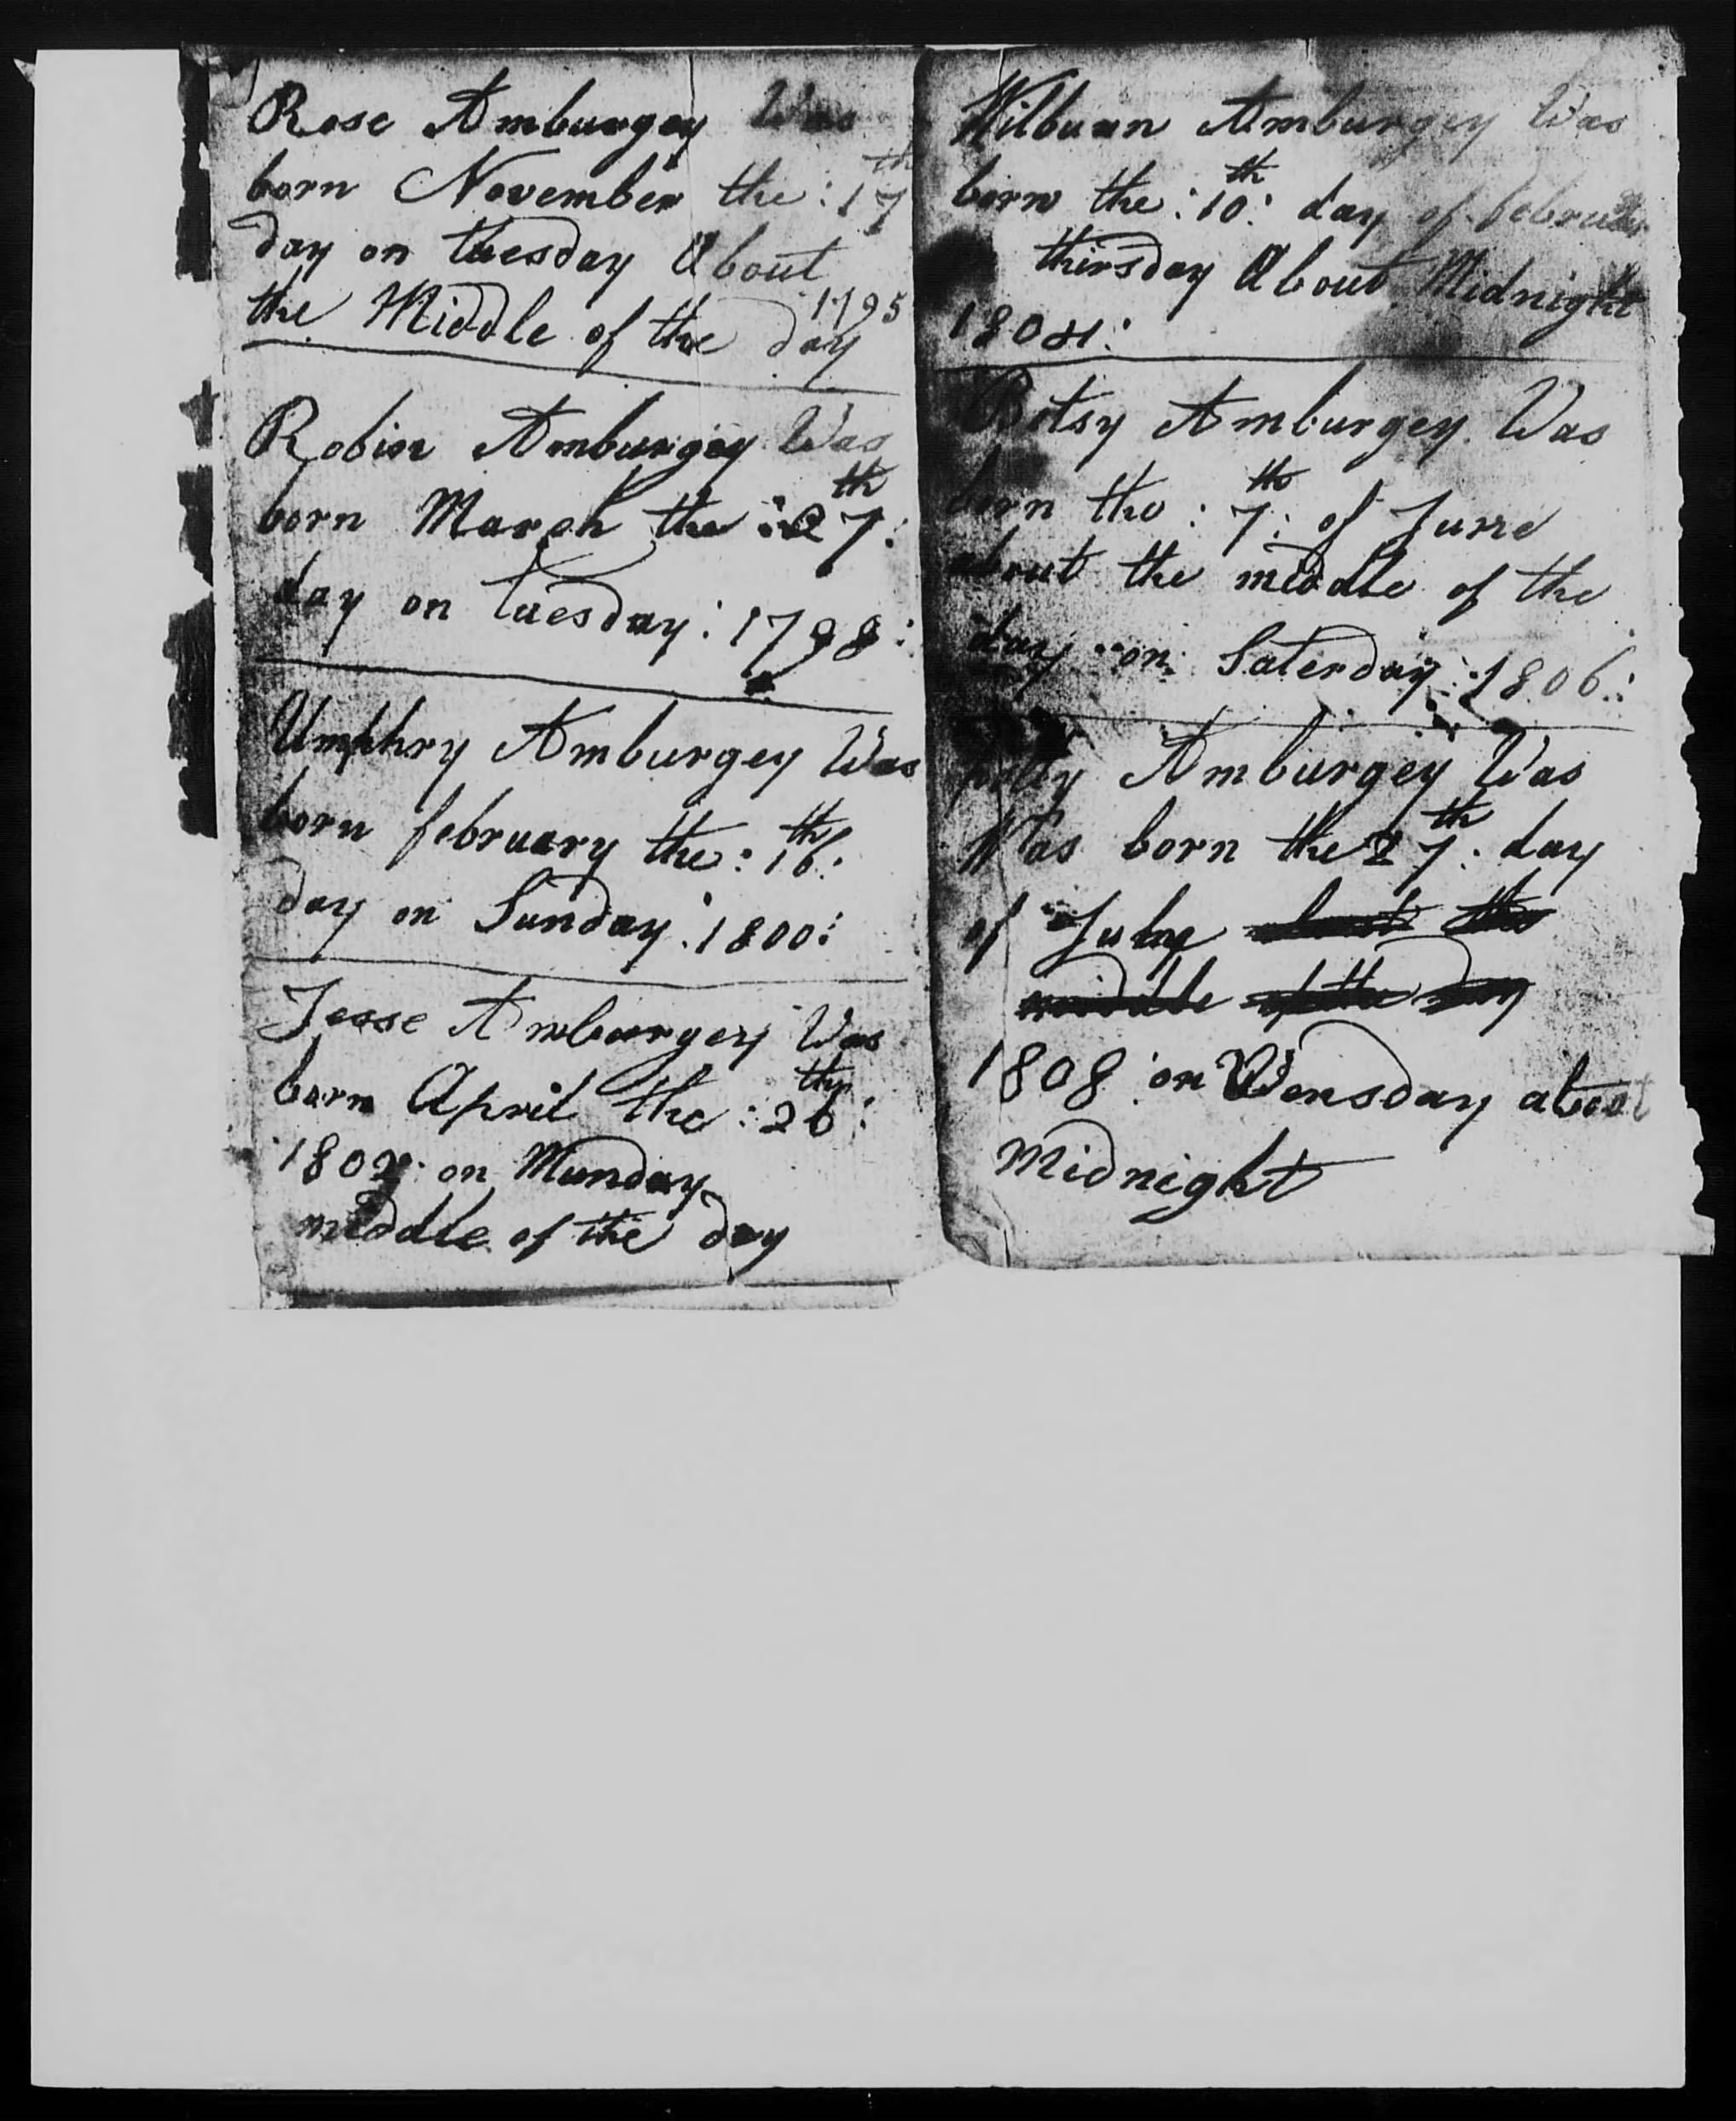 Rose Amburgey Was
born November the : 17th
day on tuesday About
the Middle of the day 1795
Robin Amburgey Was
born March the : 27th :
day on tuesday : 1798 :
Umphry Amburgey Was
born february the : 16th :
day on Sunday : 1800 :
Jesse Amburgey Was
born April the : 26th :
1802 on Munday
middle of the day
Wilburn Amburgey Was
born the : 10th : day of
thirsday About Midnight
1804 :
Betsy Amburgey Was
born the : 7th : of June
about the middle of the
day on Saterday : 1806 :
polly Amburgey Was
Was born the 27th : day
of July about the
middle of the day
1808 on Wensday about
Midnight